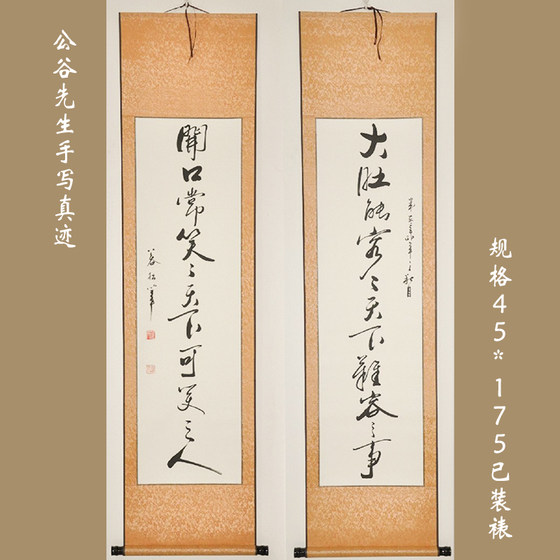 公谷先生手写真迹
大肚能容々天下難容之事
開口常笑々天下可笑之人
规格45*175已装裱